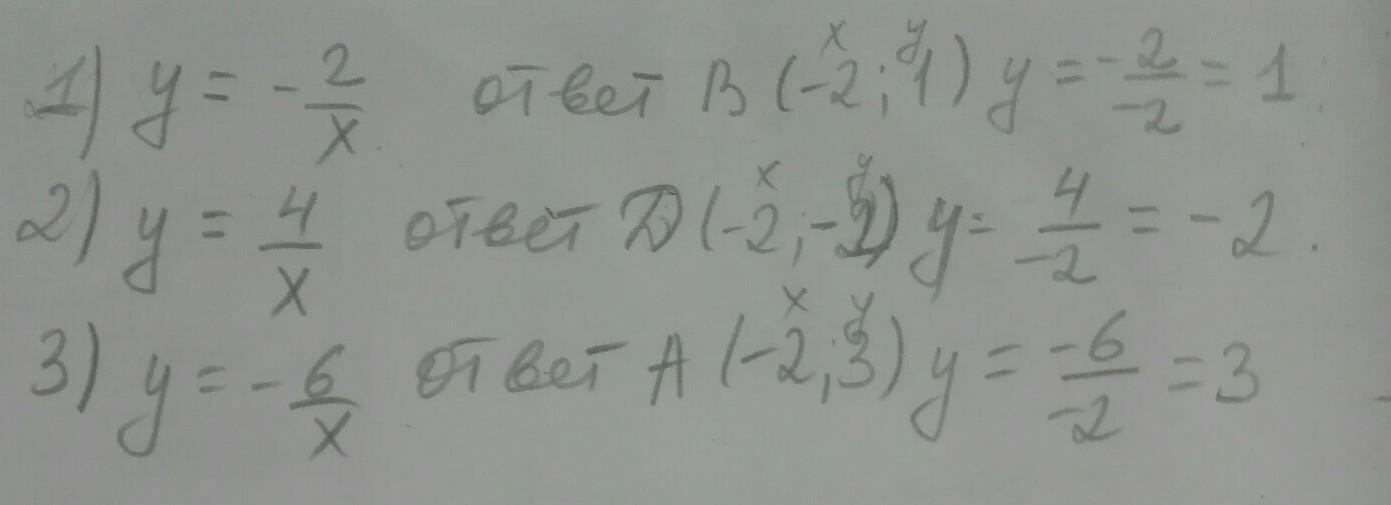 1) y = -2/x ответ B (-2; 1) y = -2/-2 = 1.
2) y = 4/x ответ D (-2; -2) y = 4/-2 = -2.
3) y = -6/x ответ A (-2; 3) y = -6/-2 = 3